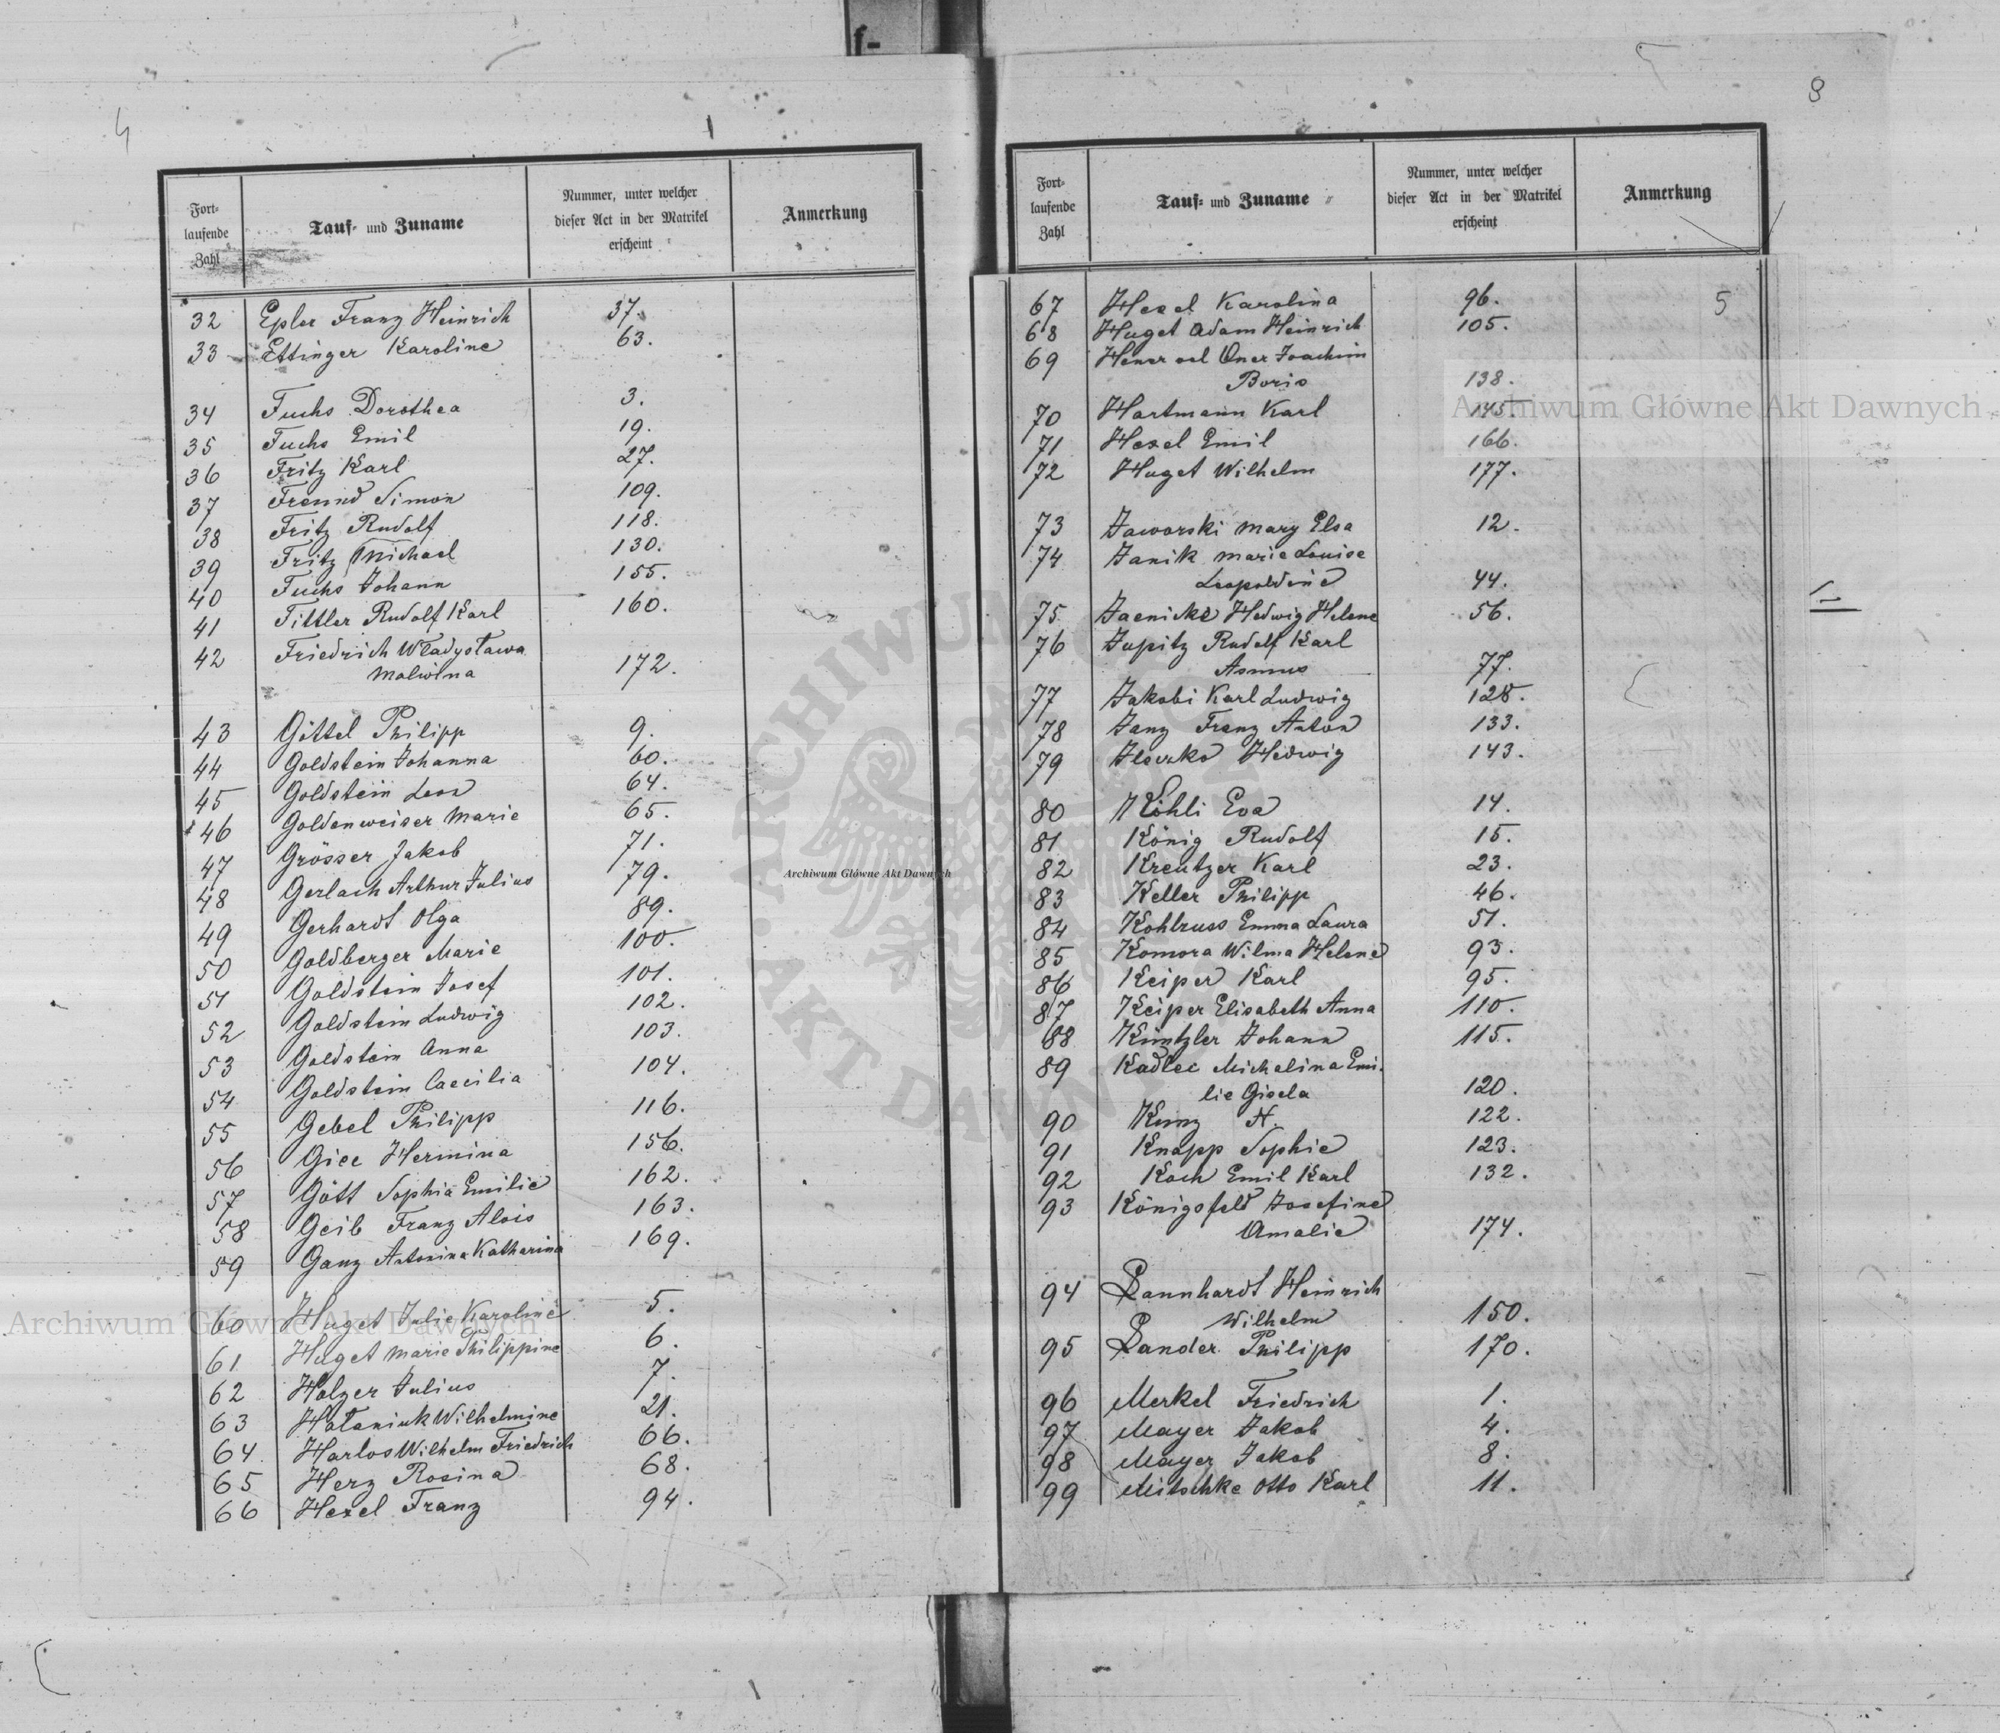 4
Fort-
laufende
Zahl
Tauf- und Zuname
Nummer, unter welcher
dieser Act in der Matrikel
erscheint
Anmerkung
32 Epler Franz Heinrich 37.
33 Ettinger Karoline 63.
34 Fuchs Dorothea 3.
35 Fuchs Emil 19.
36 Fritz Karl 27.
37 Freund Simon 109.
38 Fritz Rudolf 118.
39 Fritz Michael 130.
40 Fuchs Johann 155.
41 Tittler Rudolf Karl 160.
42 Friedrich Władysława
Malwina 172.
43 Göttel Philipp 9.
44 Goldstein Johanna 60.
45 Goldstein Leon 64.
46 Goldenweiser Marie 65.
47 Grösser Jakob 71.
48 Gerlach Arthur Julius 79.
49 Gerhardt Olga 89.
50 Goldberger Marie 100.
51 Goldstein Josef 101.
52 Goldstein Ludwig 102.
53 Goldstein Anna 103.
54 Goldstein Caecilia 104.
55 Gebel Philipp 116.
56 Giec Hermina 156.
57 Gött Sophia Emilie 162.
58 Geib Franz Alois 163.
59 Ganz Antonina Katharina 169.
60 Huget Julie Karoline 5.
61 Huget Marie Philippine 6.
62 Holzer Julius 7.
63 Hołaniuk Wilhelmine 21.
64 Harlos Wilhelm Friedrich 66.
65 Herz Rosina 68.
66 Hexel Franz 94.
8
Fort-
laufende
Zahl
Tauf- und Zuname
Nummer, unter welcher
dieser Act in der Matrikel
erscheint
Anmerkung
5
67 Hexel Karolina 96.
68 Huget Adam Heinrich 105.
69 Hener vel Oner Joachim
Boris 138.
70 Hartmann Karl 145.
71 Hexel Emil 166.
72 Huget Wilhelm 177.
73 Jaworski Mary Elsa 12.
74 Janik Marie Louise
Leopoldine 44.
75 Jaenicke Hedwig Helene 56.
76 Jupitz Rudolf Karl
Asmus 77.
77 Jakobi Karl Ludwig 128.
78 Janz Franz Anton 133.
79 Hedwig 143.
80 Köhli Eva 14.
81 König Rudolf 15.
82 Kreutzer Karl 23.
83 Keller Philipp 46.
84 Kohlruss Emma Laura 51.
85 Komora Wilma Helene 93.
86 Keiper Karl 95.
87 Keiper Elisabeth Anna 110.
88 Küntzler Johann 115.
89 Kadlec Michelina Emi-
lie Gisela 120.
90 Kunz N. 122.
91 Knapp Sophie 123.
92 Koch Emil Karl 132.
93 Königsfeld Josefine
Amalie 174.
94 Lannhardt Heinrich
Wilhelm 150.
95 Lander Philipp 170.
96 Merkel Friedrich 1.
97 Mayer Jakob 4.
98 Mayer Jakob 8.
99 Mitschke Otto Karl 11.
Archiwum Główne Akt Dawnych
Archiwum Główne Akt Dawnych
Archiwum Główne Akt Dawnych